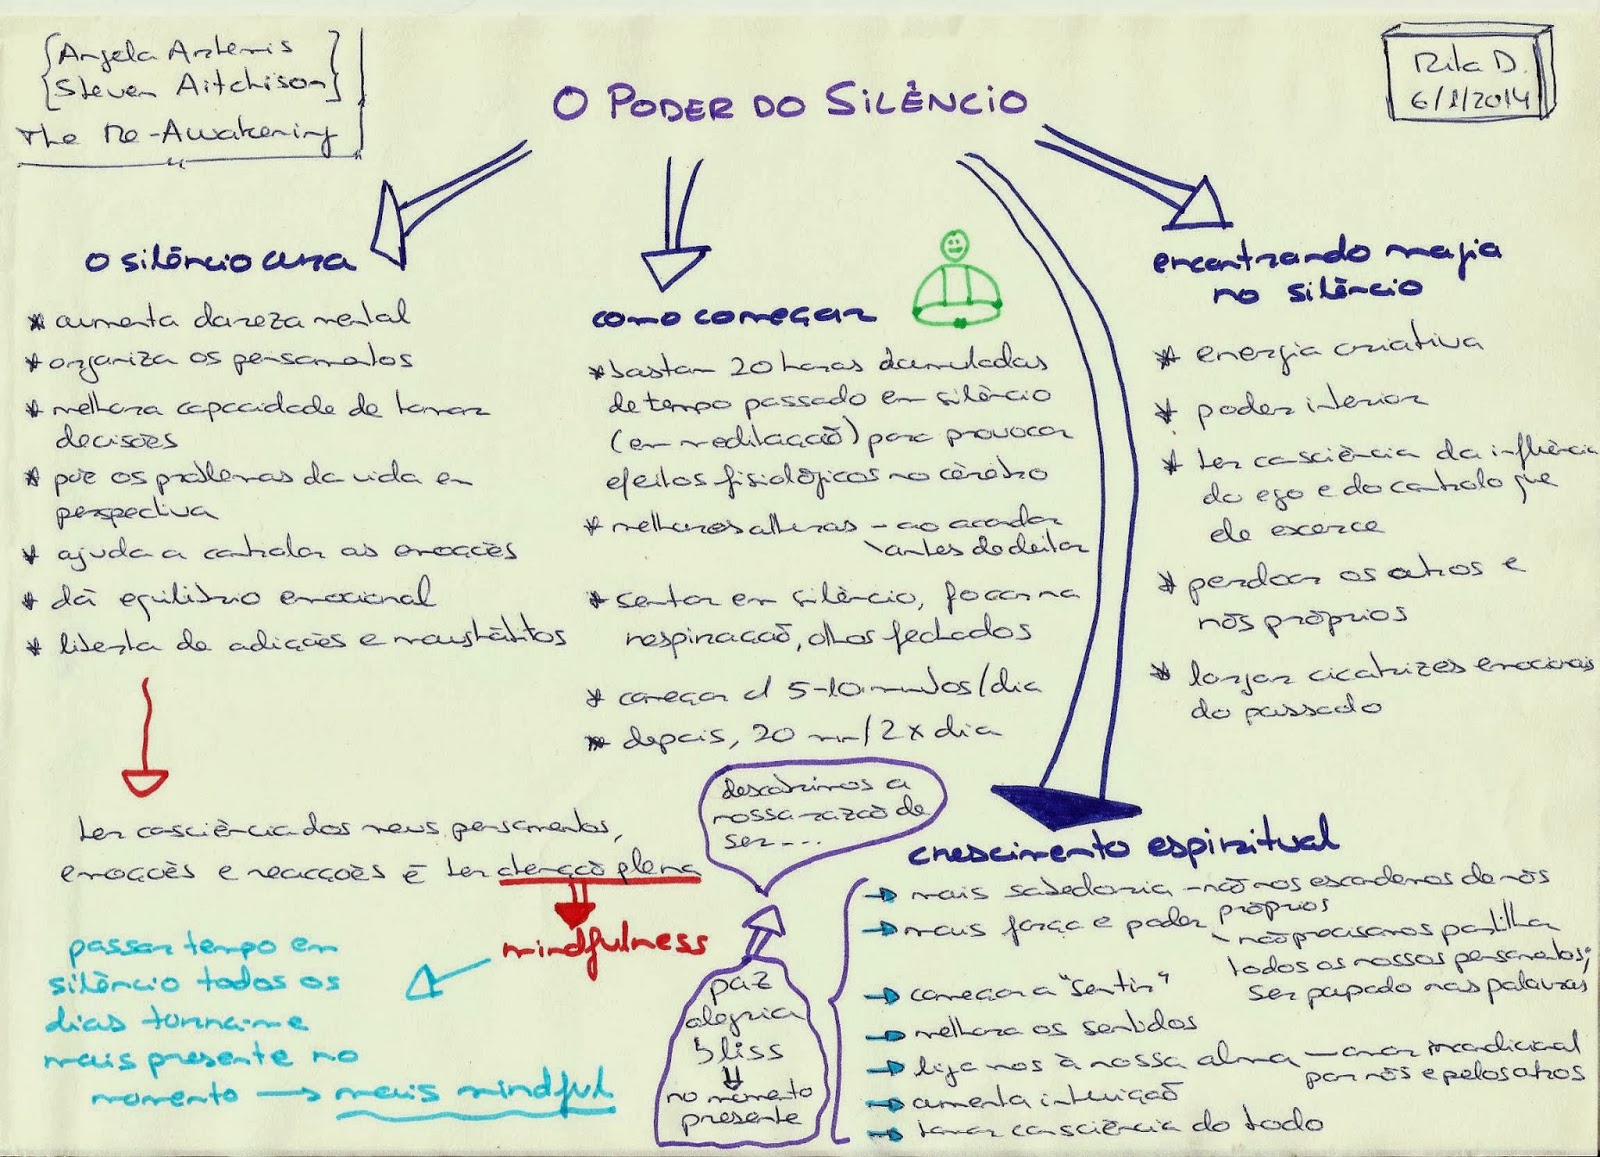 {Angela Artemis}
{Steven Aitchison}
The Re-Awakening
Rita D.
6/1/2014
O PODER DO SILÊNCIO
o silêncio cura
* aumenta clareza mental
* organiza os pensamentos
* melhora capacidade de tomar
decisões
* põe os problemas da vida em
perspectiva
* ajuda a controlar as emoções
* dá equilíbrio emocional
* liberta de adições e maus hábitos
ter consciência dos meus pensamentos,
emoções e reacções é ter atenção plena
mindfulness
passar tempo em
silêncio todos os
dias torna-me
mais presente no
momento → mais mindful
como começar
* bastam 20 horas acumuladas
de tempo passado em silêncio
(em meditação) para provocar
efeitos fisiológicos no cérebro
* melhores alturas - ao acordar
\ antes de deitar
* sentar em silêncio, focar na
respiração, olhos fechados
* começar c/ 5-10 minutos/dia
* depois, 20 min/2x dia
encontrando magia
no silêncio
* energia criativa
* poder interior
* ter consciência da influência
do ego e do controlo que
ele exerce
* perdoar os outros e
nós próprios
* largar cicatrizes emocionais
do passado
descobrimos a
nossa razão de
ser...
paz
alegria
bliss
no momento
presente
crescimento espiritual
→ mais sabedoria - não nos escondemos de nós
próprios
→ mais força e poder
\ não precisamos partilhar
todos os nossos pensamentos;
ser poupado nas palavras
→ começar a "sentir"
→ melhora os sentidos
→ liga-nos à nossa alma - amor incondicional
por nós e pelos outros
→ aumenta intuição
→ tomar consciência do todo